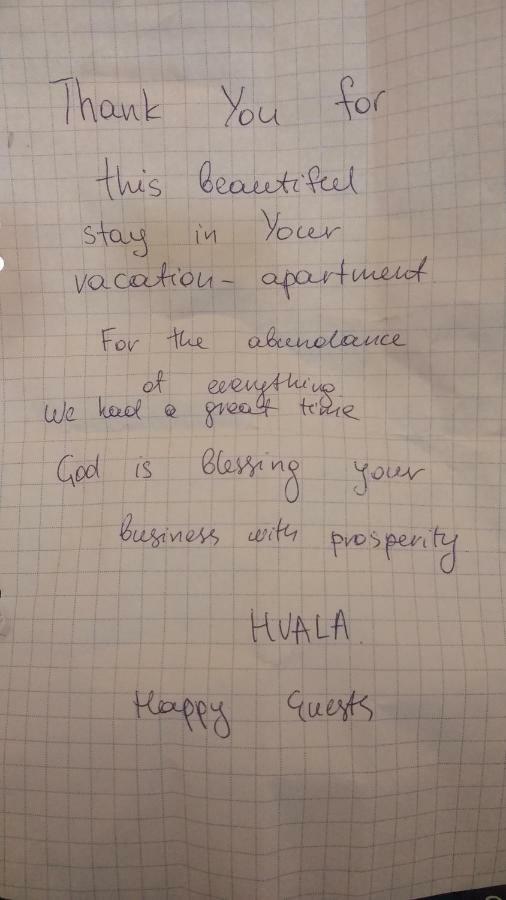 Thank You for
this beautiful
stay in Your
vacation- apartment
For the abundance
of everything
We had a great time
God is Blessing your
business with prosperity
HVALA.
Happy Guests